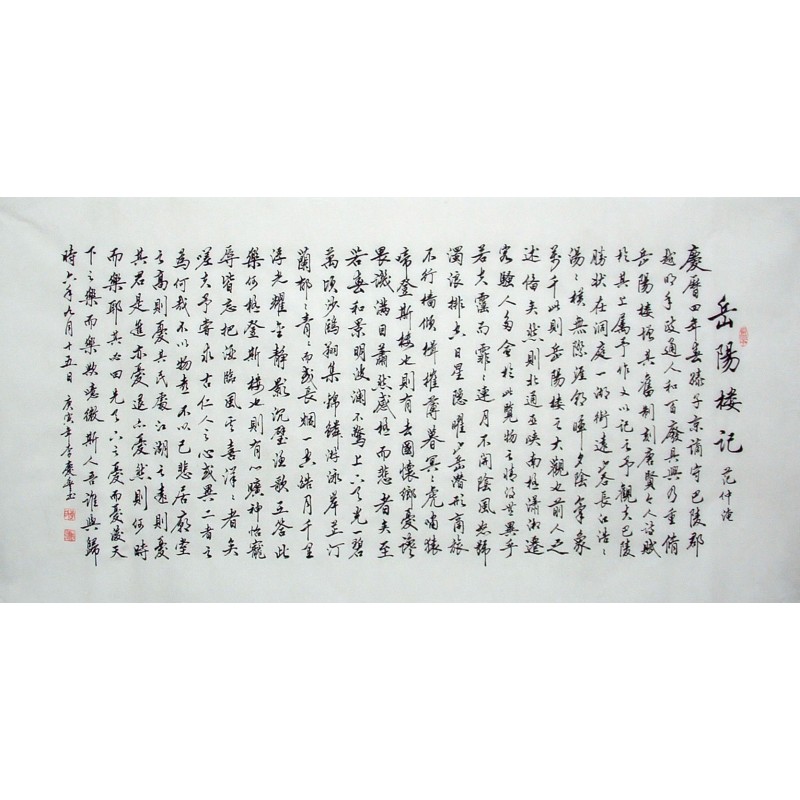 岳陽楼記
范仲淹
慶曆四年春滕子京謫守巴陵郡
越明年政通人和百廢具興乃重脩
岳陽楼增其舊制刻唐賢今人詩賦
於其上屬予作文以記之予觀夫巴陵
勝状在洞庭一湖銜遠山吞長江浩浩
湯湯橫無際涯朝暉夕陰氣象
萬千此則岳陽楼之大觀也前人之
述備矣然則北通巫峽南極瀟湘遷
客騷人多會於此覽物之情得無異乎
若夫霪雨霏霏連月不開陰風怒號
濁浪排空日星隐耀山岳潛形商旅
不行檣傾楫摧薄暮冥冥虎嘯猿
啼登斯楼也則有去國懷鄉憂讒
畏譏滿目蕭然感極而悲者矣至
若春和景明波瀾不驚上下天光一碧
萬頃沙鷗翔集錦鱗游泳岸芷汀
蘭郁郁青青而或長烟一空皓月千里
浮光耀金静影沉璧漁歌互答此
樂何極登斯楼也則有心曠神怡寵
辱皆忘把酒臨風其喜洋洋者矣
嗟夫予嘗求古仁人之心或異二者之
為何哉不以物喜不以己悲居廟堂
之高則憂其民處江湖之遠則憂
其君是進亦憂退亦憂然則何時
而樂耶其必曰先天下之憂而憂後天
下之樂而樂歟噫微斯人吾誰與歸
時六年九月十五日 庚寅年李慶年书